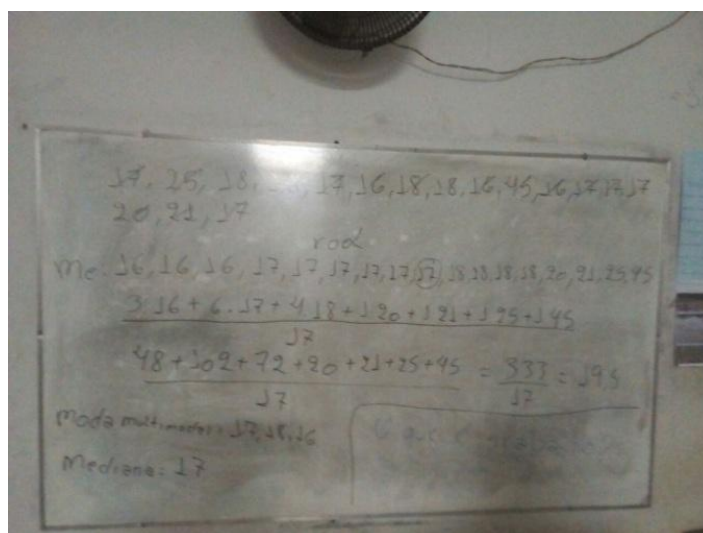 17, 25, 18, 17, 16, 18, 18, 16, 45, 16, 17, 17, 17
20, 21, 17
rod
Me. 16, 16, 16, 17, 17, 17, 17, 17, 17, 18, 18, 18, 18, 20, 21, 25, 45
3.16 + 6.17 + 4.18 + 1 20 + 1 21 + 1 25 + 1 45
17
48 + 102 + 72 + 20 + 21 + 25 + 45 = 333 = 19,5
17 17
Moda multimodal: 17, 18, 16
Mediana: 17